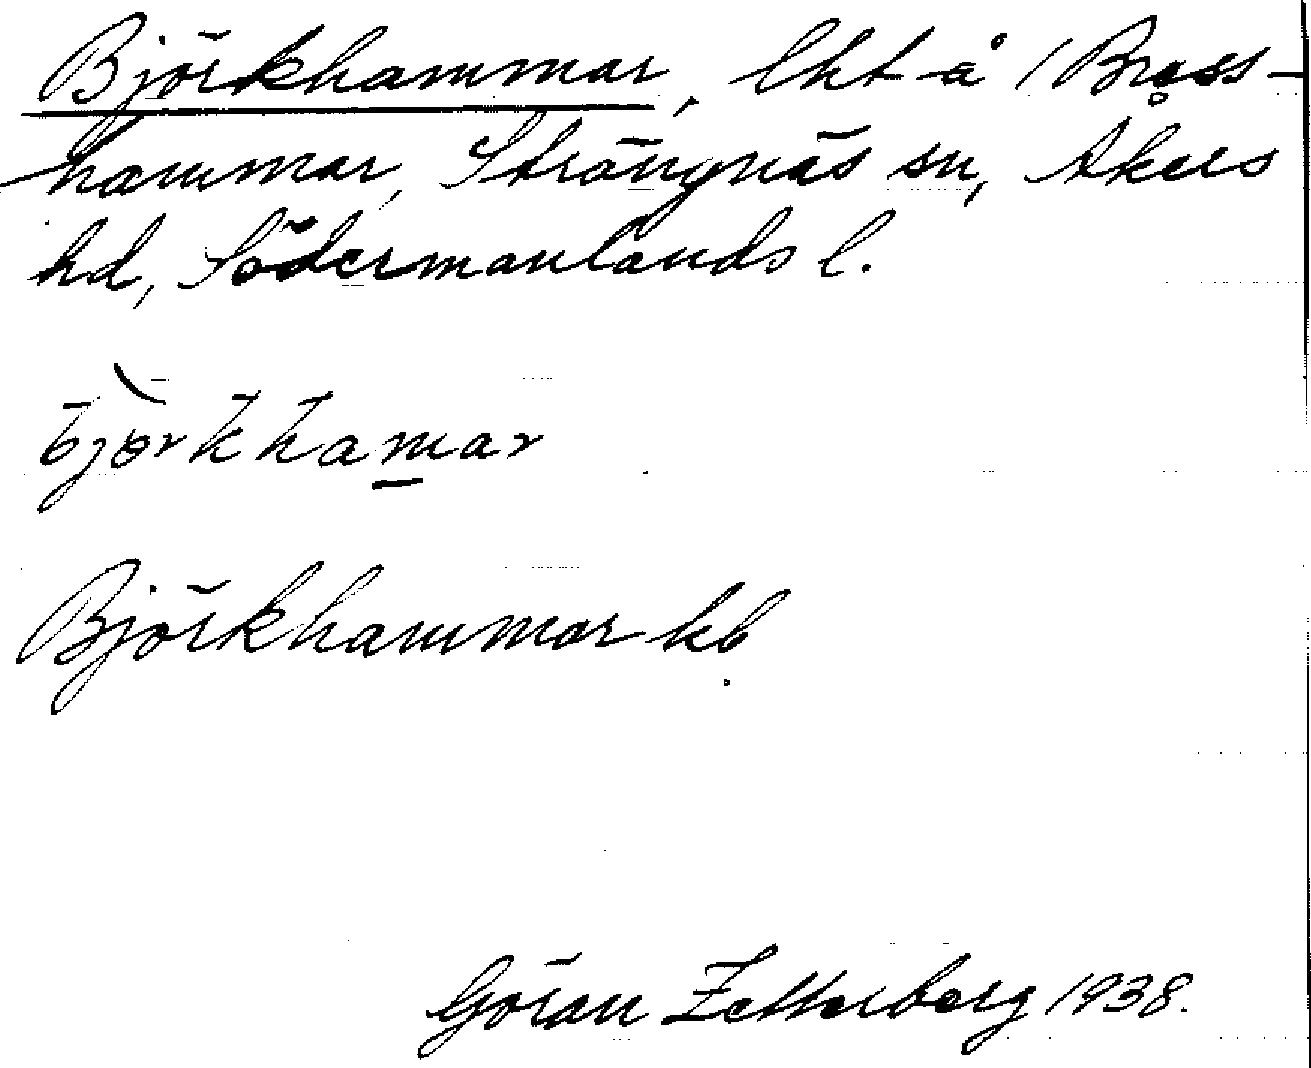 Björkhammar, lht å /Bross-
hammar, Strängnäs sn, Åkers
hd, Södermanlands l.
björkhamar
Björkhammar kb
Göran Zetterberg 1938.